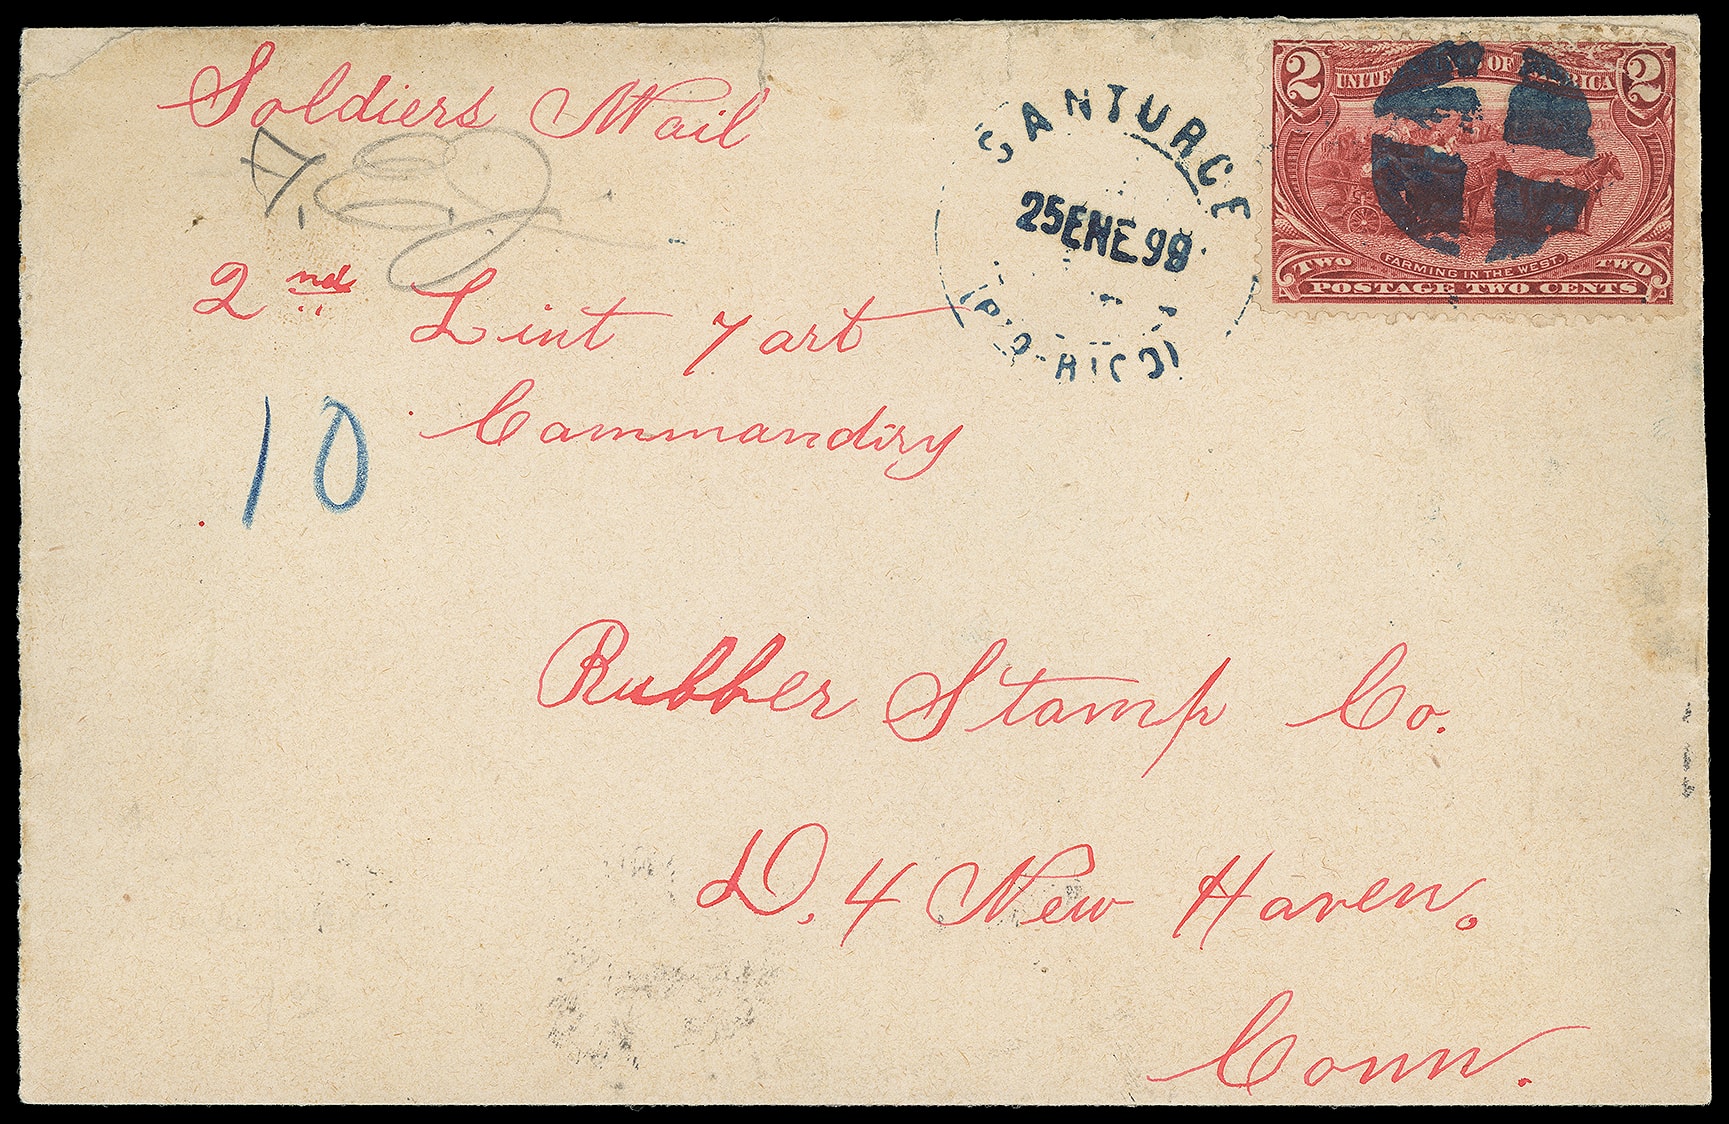 Soldiers Mail
2nd Lint 7 art
Commandiry
10
SANTURCE
25 ENE. 99
(P.O-RICO)
2 UNITED STATES OF AMERICA 2
FARMING IN THE WEST.
TWO TWO
POSTAGE TWO CENTS
Rubber Stamp Co.
D, 4 New Haven.
Conn.